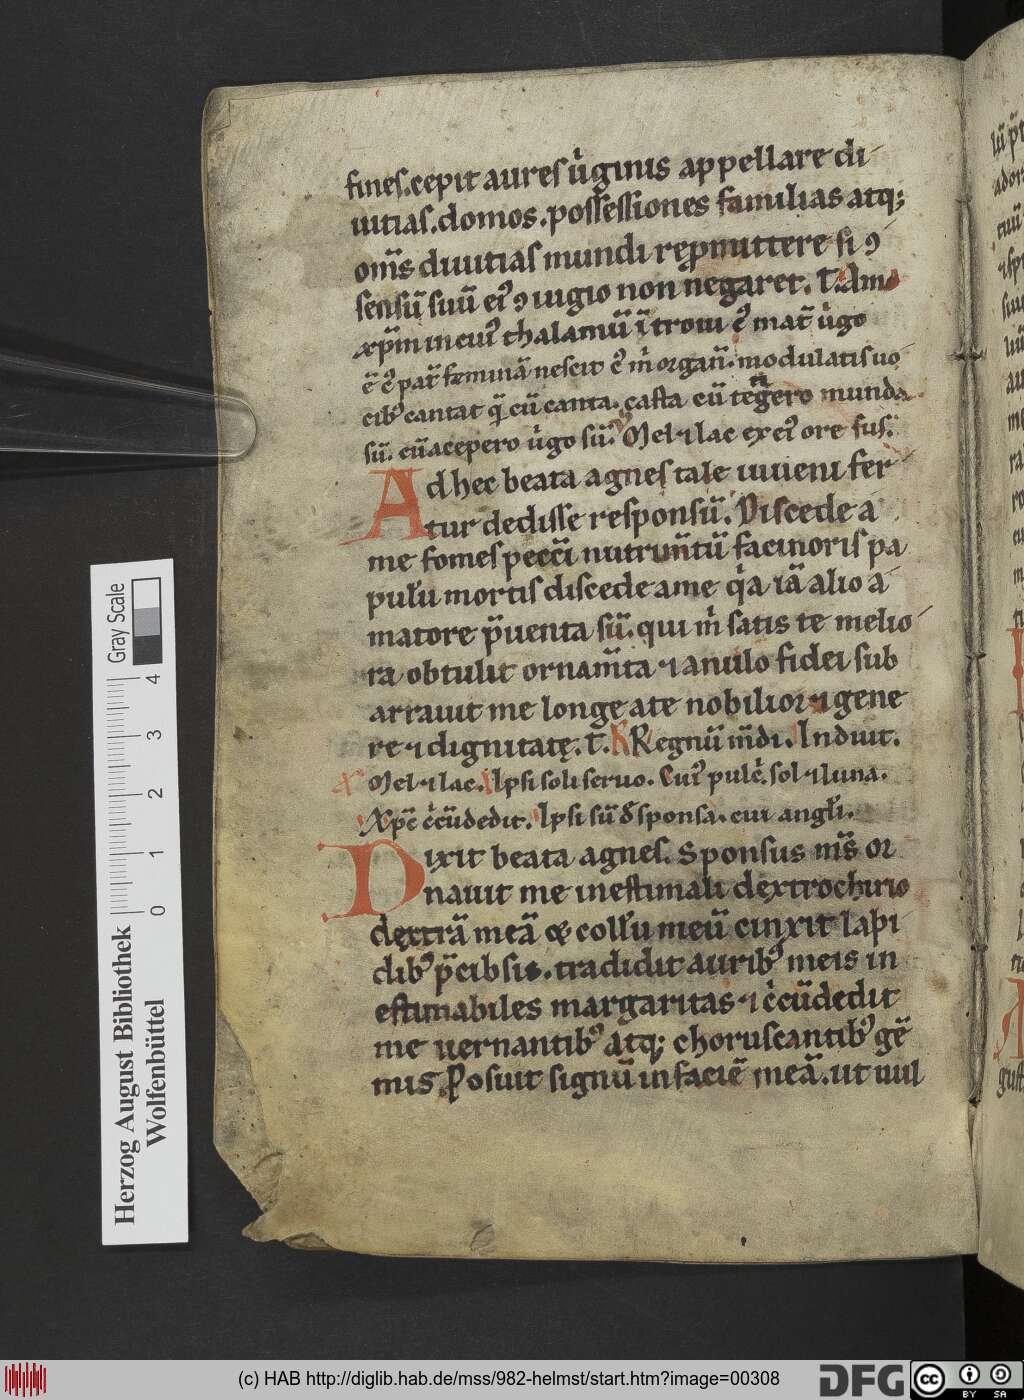 fines. cepit aures u̍ginis appellare di
uitias. domos. possessiones familias atq;
om̅s diuitias mundi rep̱mittere si ꝯ
sensū suū ei᷒ ꝯiugio non negaret. T. Amo
xp̅m in cui᷒ thalamū ı̅troiui c᷒ mat̅ u̍go
ē c᷒ pat̅ feminā nescit c᷒ m̍ organ̅. modulatis uo
cib᷒ cantat q̅ cū canta. casta cū tegero munda
sū. cū acepero u̍go sū. Mel ⁊ lac ex ei᷒ ore sus.
Ad hec beata agnes tale iuueni fer
tur dedisse responsū. Discede a
me fomes pecc̅i nutrim̅tū facinoris pa
bulū mortis discede a me q̍a iā alio a
matore p̅uenta sū. qui m̍ satis te melio
ra obtulit ornam̅ta ⁊ anulo fidei sub
arrauit me longe a te nobilior ⁊ gene
re ⁊ dignitatę. T. R Regnū m̅di. Induit.
Mel ⁊ lac. Ipsi soli seruo. Cui᷒ pulc̍. sol ⁊ luna.
Xp̅c c̍cūdedit. Ipsi sū d̅sponsa. cui angl̅i.
Dixit beata agnes. Sponsus m̅s or
nauit me inestimali dextrochirio
dextrā meā & collū meū cinxit lapi
dib᷒ p̅cibsis. tradidit aurib᷒ meis in
estimabiles margaritas ⁊ c̍cūdedit
me uernantib᷒ atq; choruscantib᷒ gē
mis. Posuit signū in faciē meā. ut nul
Gray Scale
0 1 2 3 4
Herzog August Bibliothek
Wolfenbüttel
(c) HAB http://diglib.hab.de/mss/982-helmst/start.htm?image=00308
DFG
cc BY SA